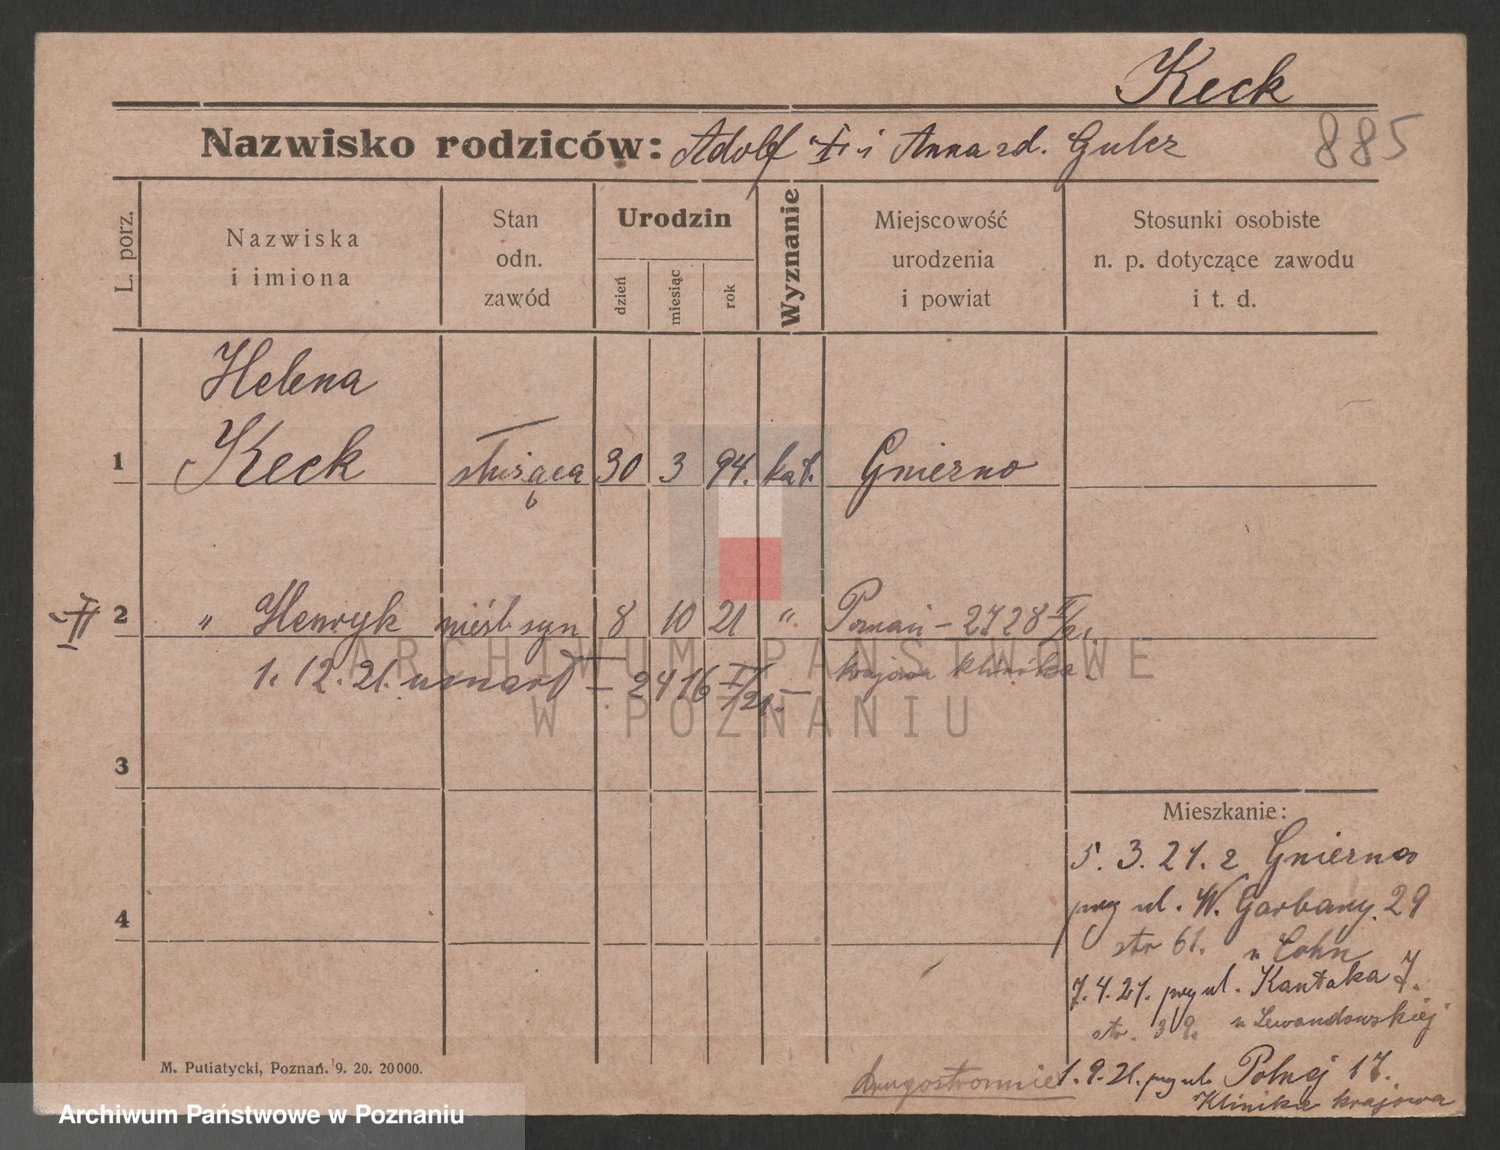 Keck
Nazwisko rodziców: Adolf i Anna zd. Gulcz
885
L. porz.
Nazwiska
i imiona
Stan
odn.
zawód
Urodzin
dzień
miesiąc
rok
Wyznanie
Miejscowość
urodzenia
i powiat
Stosunki osobiste
n. p. dotyczące zawodu
i t. d.
Helena
1 Keck służąca 30 3 94. kat. Gniezno
2 " Henryk nieśl. syn 8 10 21 " Poznań - 2728
1. 12. 21. umarł - 2416 krajowa klinika
3
Mieszkanie:
5. 3. 21. z Gniezna
przy ul. W. Garbary. 29
4
str 61. u Cohn
7. 4. 21. przy ul. Kantaka 7.
str. u Lewandowskiej
M. Putiatycki, Poznań. 9. 20. 20000.
drugostronnie 1. 9. 21. przy ul. Polnej 17.
Klinika krajowa
ARCHIWUM PAŃSTWOWE
W POZNANIU
Archiwum Państwowe w Poznaniu